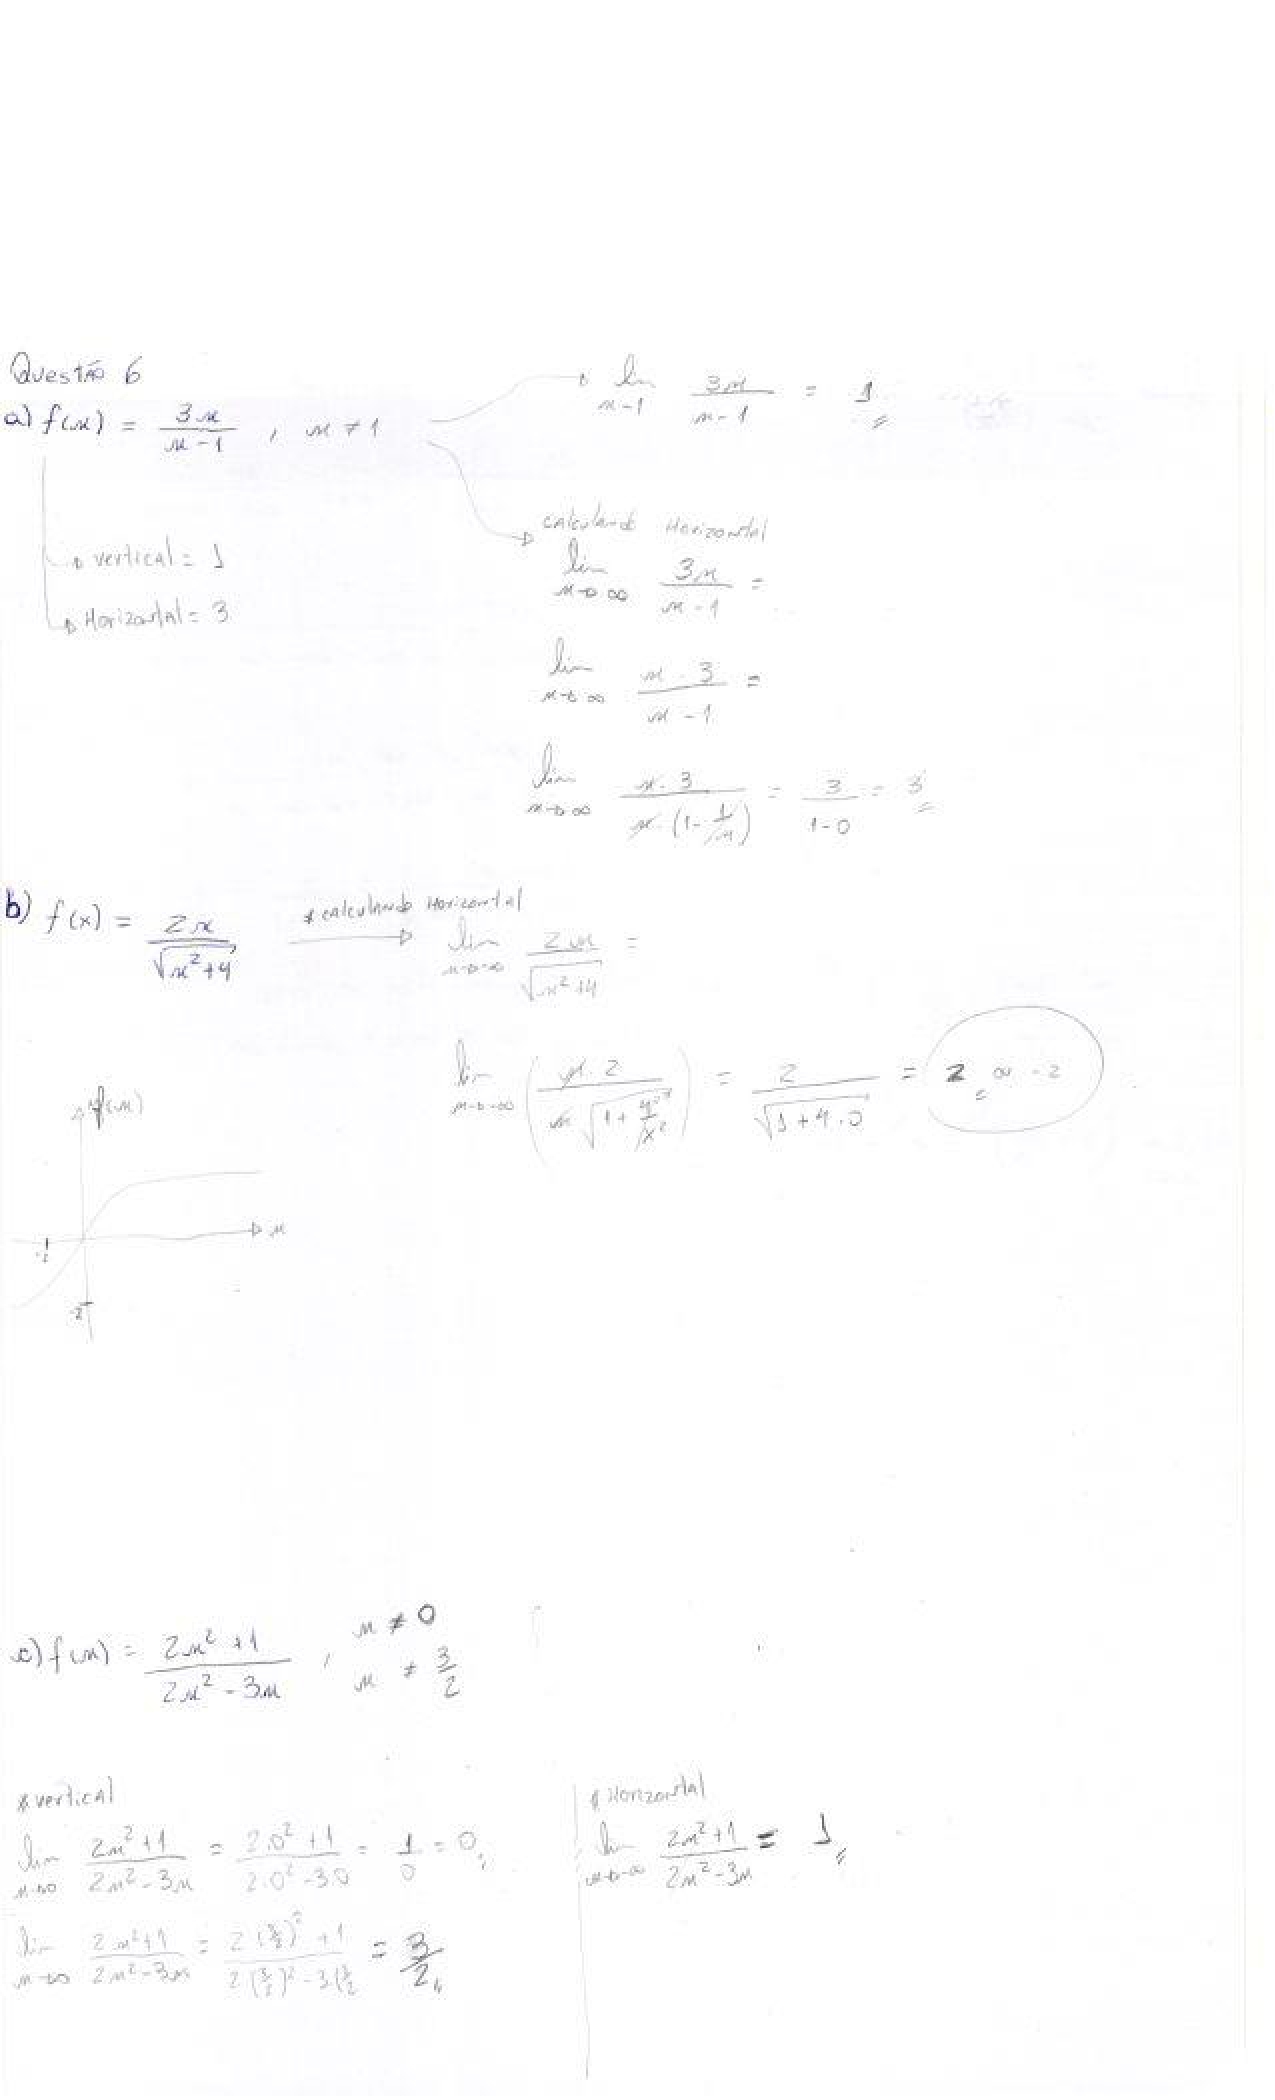 Questão 6
a) f(x) = 3x / x-1 , x ≠ 1
vertical = 1
Horizontal = 3
lim x-1 3x / x-1 = 1
calculando Horizontal
lim x→∞ 3x / x-1 =
lim x→∞ x·3 / x-1 =
lim x→∞ x·3 / x·(1-1/x) = 3 / 1-0 = 3
b) f(x) = 2x / √x²+4
* calculando Horizontal
lim x→-∞ 2x / √x²+4 =
lim x→-∞ (x·2 / x√1+4/x²) = 2 / √1+4·0 = 2 ou -2
f(x)
x
-1
-2
c) f(x) = 2x²+1 / 2x²-3x , x ≠ 0
x ≠ 3/2
* vertical
lim x→0 2x²+1 / 2x²-3x = 2.0²+1 / 2.0²-3.0 = 1/0 = 0
lim x→∞ 2x²+1 / 2x²-3x = 2(3/2)²+1 / 2(3/2)²-3(3/2 = 3/2
* Horizontal
lim x→-∞ 2x²+1 / 2x²-3x = 1